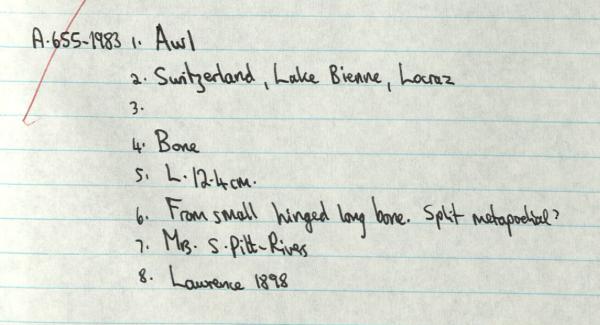 A.655-1983 1. Awl
2. Switzerland, Lake Bienne, Locraz
3.
4. Bone
5. L. 12.4cm.
6. From small hinged long bone. Split metapodial?
7. Mrs. S. Pitt-Rivers
8. Lawrence 1898